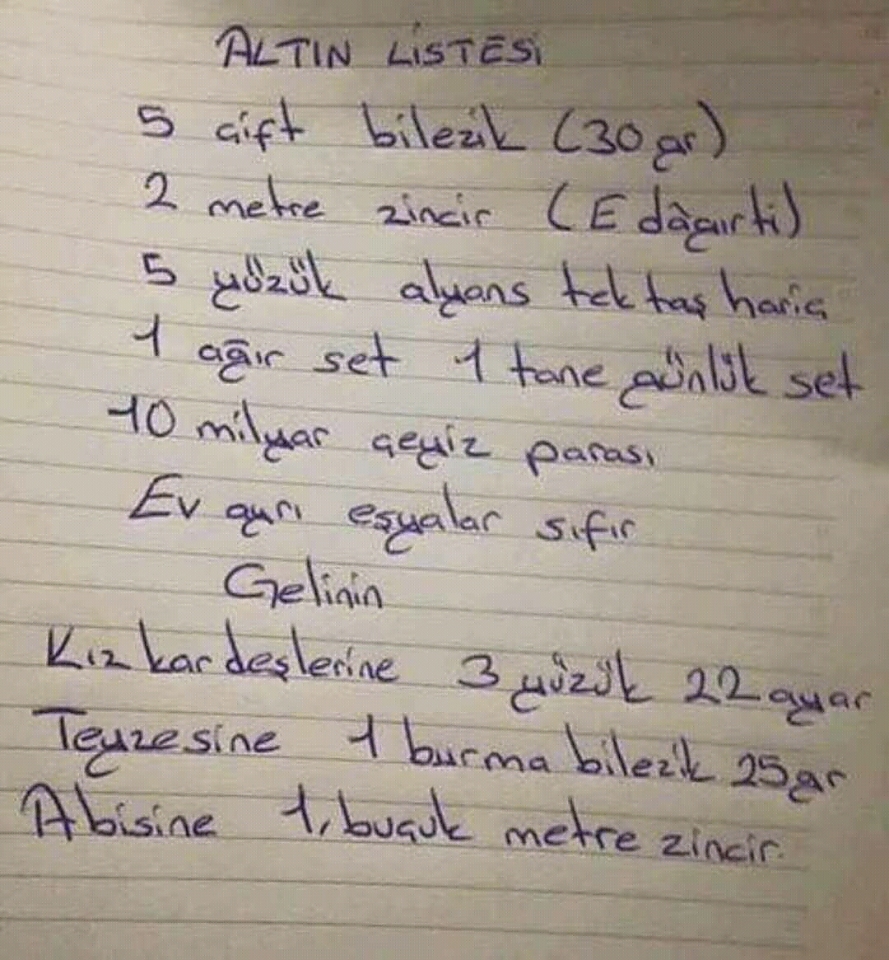 ALTIN LİSTESİ
5 çift bilezik (30 gr)
2 metre zincir (E dağırti)
5 yüzük alyans tek taş hariç
1 ağır set 1 tane günlük set
10 milyar çeyiz parası
Ev ayrı eşyalar sıfır
Gelinin
Kız kardeşlerine 3 yüzük 22 ayar
Teyzesine 1 burma bilezik 25 gr
Abisine 1, buçuk metre zincir.